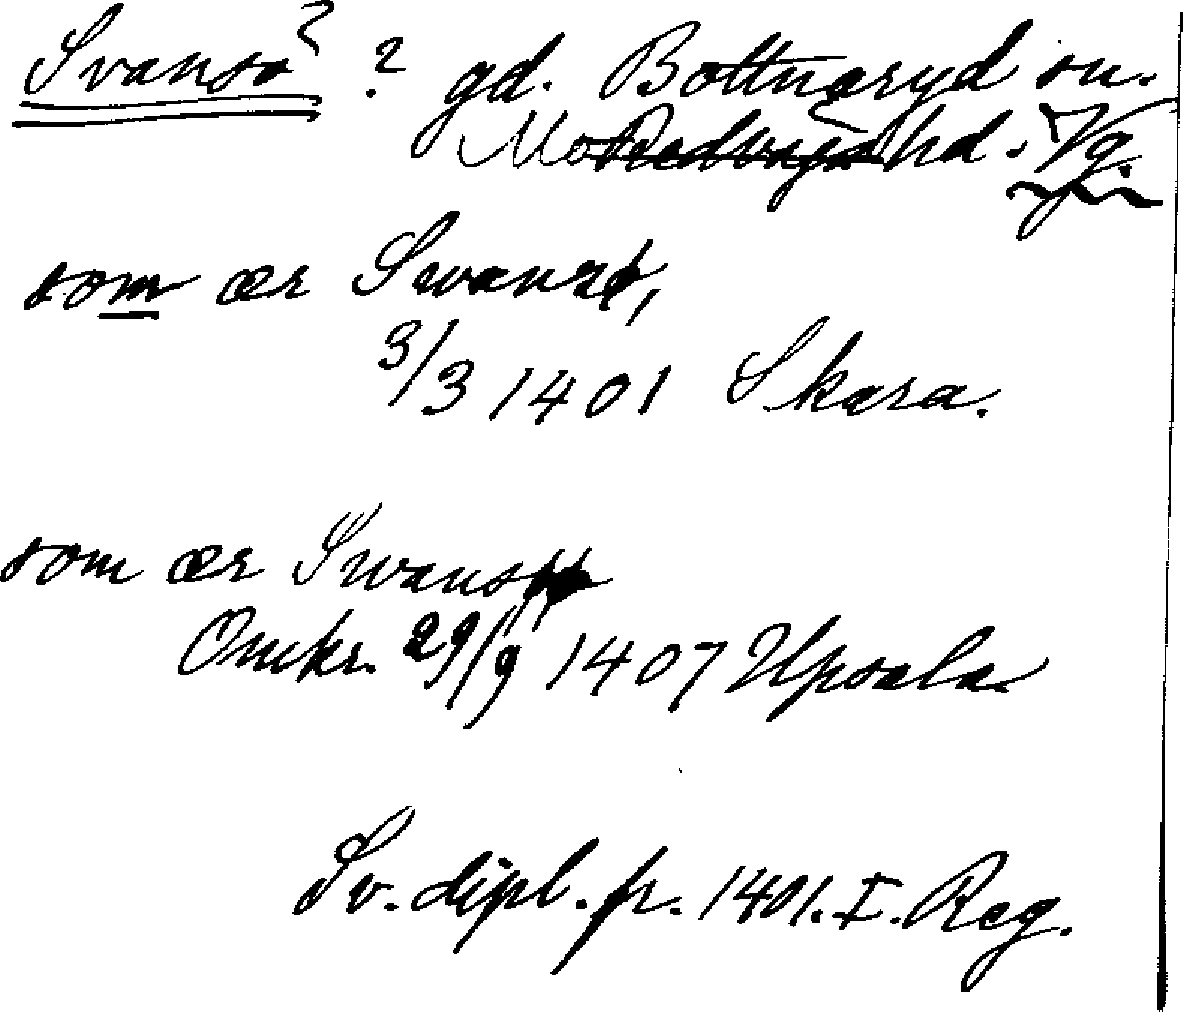 Svanso? ? gd. Bottnaryd sn.
Mo hd. Vg.
som ær Swansø,
3/3 1401 Skara.
som ær Swansø
Omkr. 29/9 1407 Upsala
Sv. dipl. fr. 1401. I. Reg.